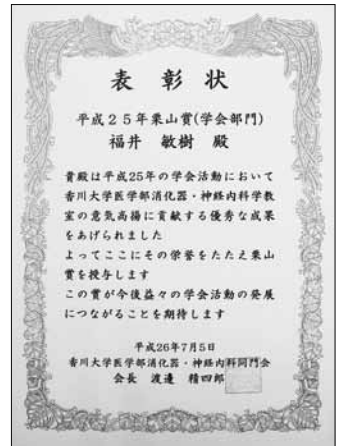 表彰状
平成25年栗山賞(学会部門)
福井 敏樹 殿
貴殿は平成25年の学会活動において
香川大学医学部消化器・神経内科学教
室の意気高揚に貢献する優秀な成果
をあげられました
よってここにその栄誉をたたえ栗山
賞を授与します
この賞が今後益々の学会活動の発展
につながることを期待します
平成26年7月5日
香川大学医学部消化器・神経内科同門会
会長 渡邊 精四郎